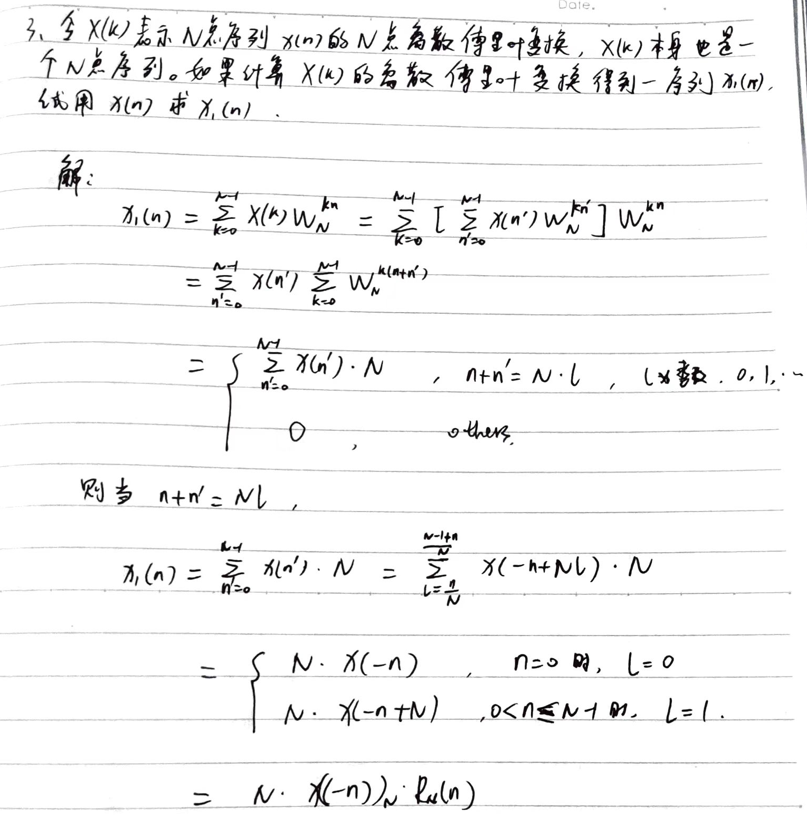 Date.
3、令 X(k) 表示 N点序列 x(n) 的 N 点离散傅里叶变换，X(k) 本身也是一
个 N点序列。如果计算 X(k) 的离散傅里叶变换得到一序列 x₁(n),
试用 x(n) 求 x₁(n) .
解：
x₁(n) = \sum_{k=0}^{N-1} X(k) W_N^{kn} = \sum_{k=0}^{N-1} [ \sum_{n'=0}^{N-1} x(n') W_N^{kn'} ] W_N^{kn}
= \sum_{n'=0}^{N-1} x(n') \sum_{k=0}^{N-1} W_N^{k(n+n')}
= { \sum_{n'=0}^{N-1} x(n') · N , n+n' = N · l , l为整数. 0, 1, ...
0 , others.
则当 n+n' = Nl ,
x₁(n) = \sum_{n'=0}^{N-1} x(n') · N = \sum_{l=\frac{n}{N}}^{\frac{N-1+n}{N}} x(-n+Nl) · N
= { N · x(-n) , n=0 时, l=0
N · x(-n+N) , 0<n≤N-1 时. l=1.
= N · x((-n))_N · R_N(n)